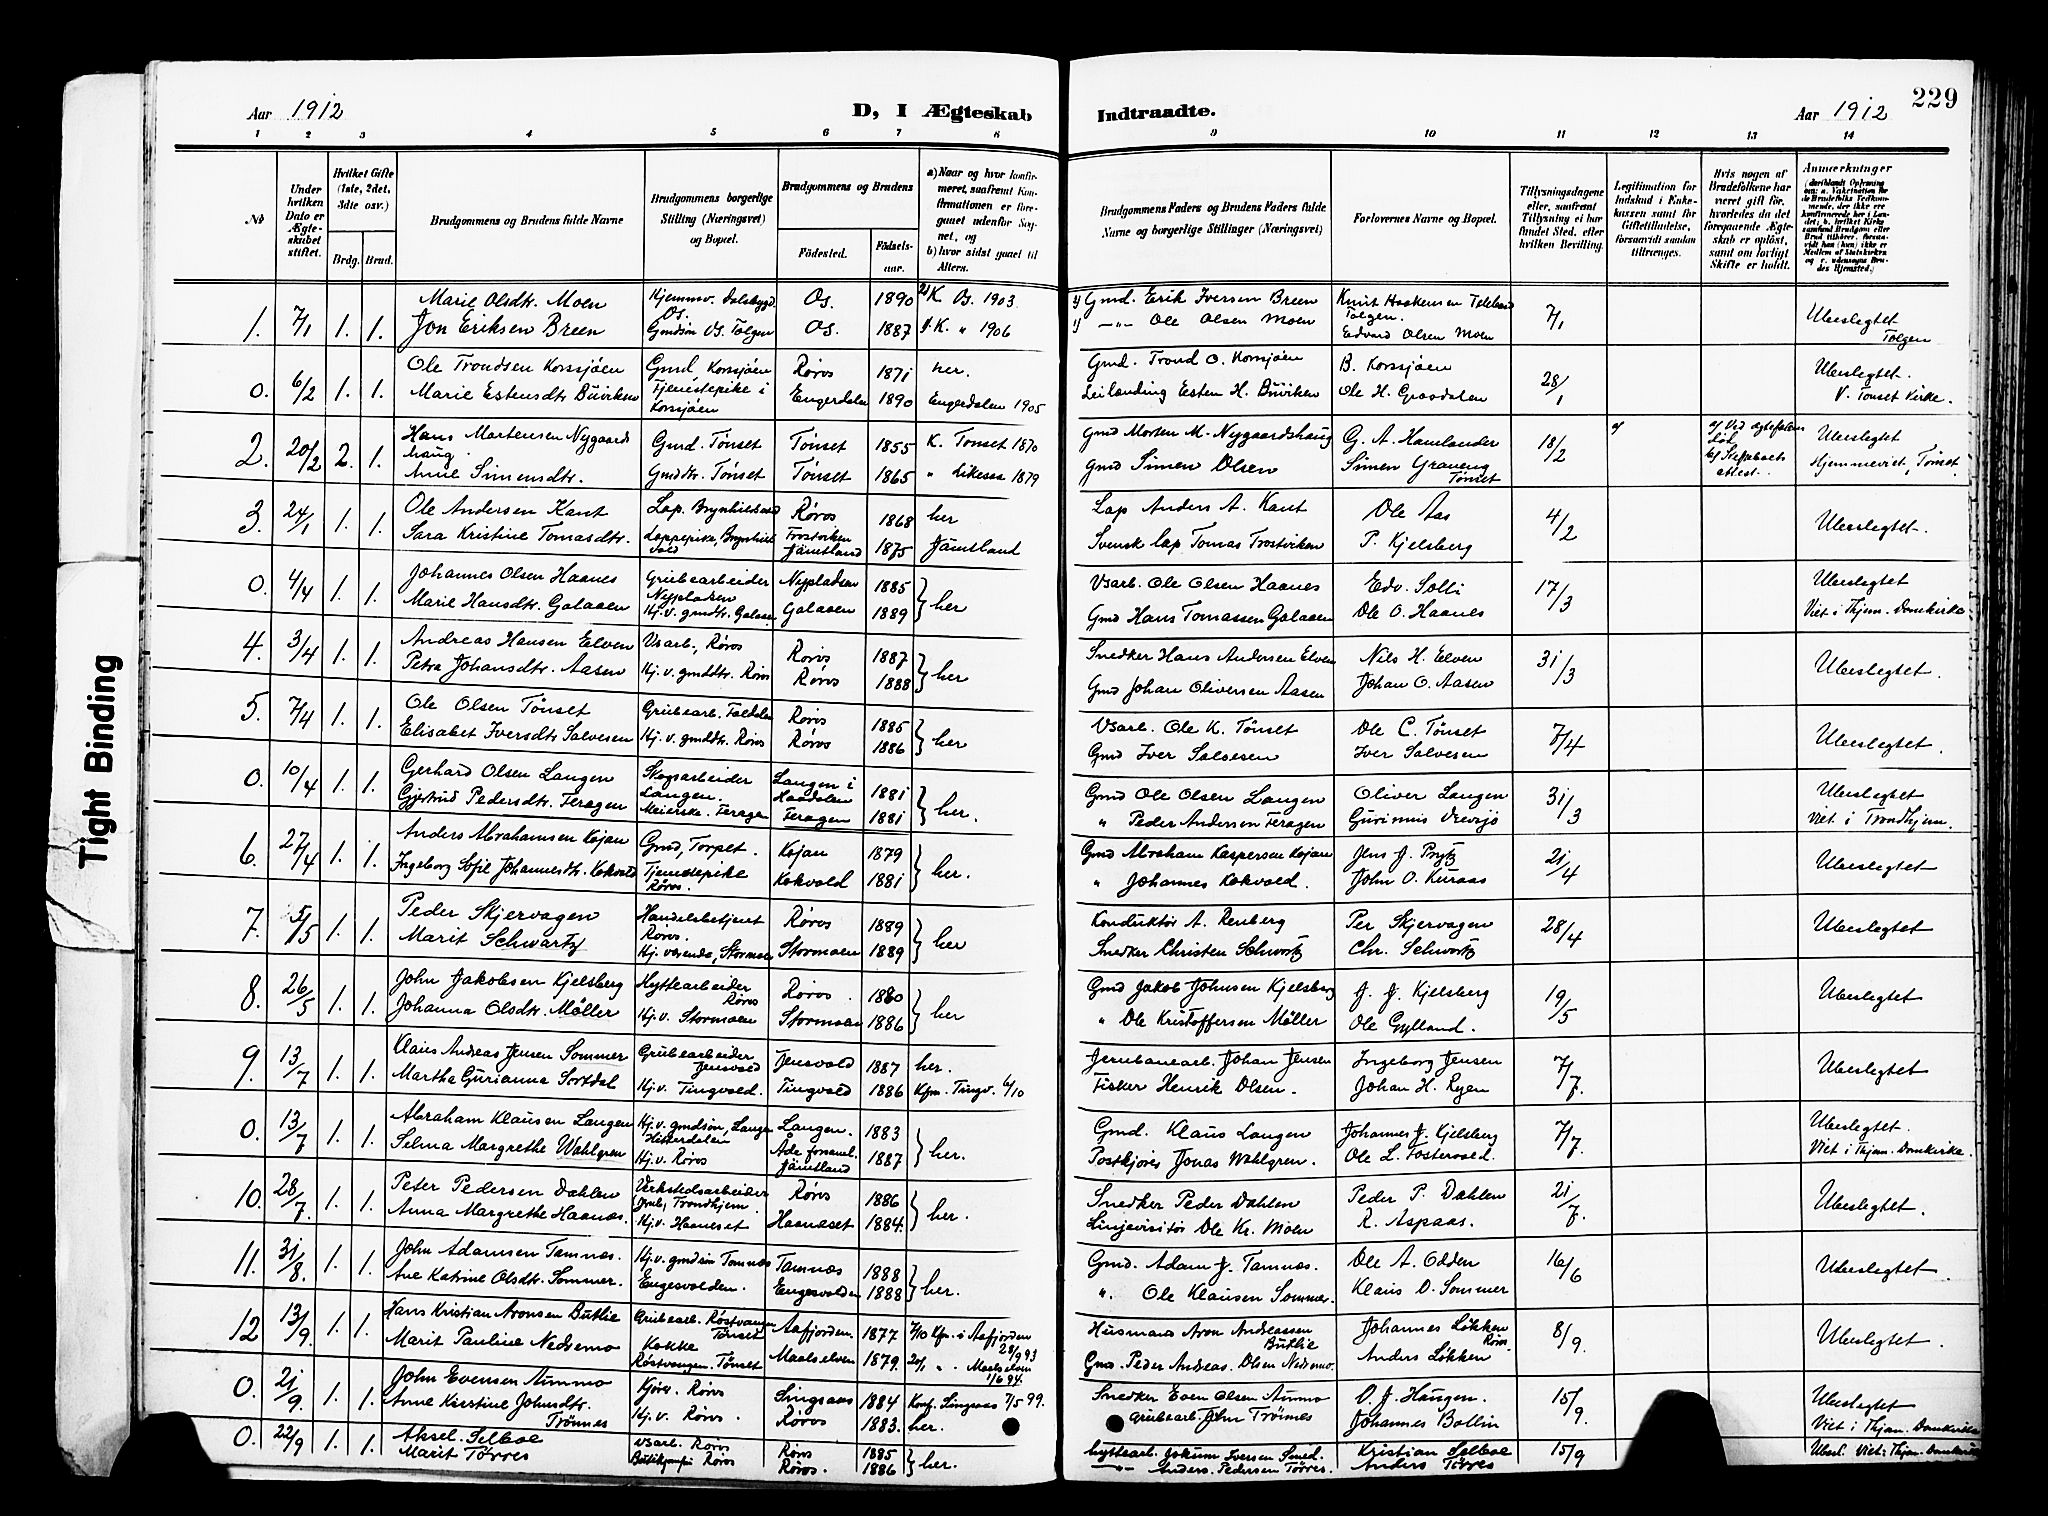 Aar 1912
D, I Ægteskab
Indtraadte.
Aar 1912
229
1 2 3 4 5 6 7 8 9 10 11 12 13 14
№
Under hvilken Dato er Ægteskabet stiftet.
Hvilket Gifte (1ste, 2det, 3dte osv.)
Brdg. Brud.
Brudgommens og Brudens fulde Navne
Brudgommens borgerlige Stilling (Næringsvei) og Bopæl.
Brudgommens og Brudens
Fødested.
Fødselsaar.
a) Naar og hvor konfirmeret, saafremt Konfirmationen er foregaaet udenfor Sognet, og
b) hvor sidst gaaet til Alters.
Brudgommens Faders og Brudens Faders fulde Navne og borgerlige Stillinger (Næringsvei)
Forlovernes Navne og Bopæl.
Tillysningsdagene eller, saafremt Tillysning ei har fundet Sted, efter hvilken Bevilling.
Legitimation for Indskud i Enkekassen samt for Giftetilladelse, forsaavidt saadan tiltrænges.
Hvis nogen af Brudefolkene har været gift før, hvorledes da det foregaaende Ægteskab er opløst, samt om lovligt Skifte er holdt.
Anmærkninger
Tight Binding
1. 7/1 1. 1. Marie Olsdtr. Moen Hjemmev. Dalsbygd Os. Os. 1890 K Os. 1903 Gmd. Erik Iversen Breen 7/1 Ubeslegtet
Jon Eriksen Breen Gmdsøn Os. Tolgen Os. 1887 K. " 1906 Ole Olsen Moen Edvard Olsen Moen Tolgen
0. 6/2 1. 1. Ole Trondsen Korssjøen Gmd Korssjøen Røros 1871 her. Gmd. Trond O. Korssjøen B. Korssjøen 28/1 Ubeslegtet.
Marie Estensdtr Buviken Tjenestepike i Korssjøen Engerdalen 1890 Engerdalen 1905 Leilending Esten H. Buviken Ole H. Graadalen V. Tønset Kirke.
2. 20/2 2. 1. Hans Mortensen Nygaardshaug Gmd. Tønset Tønset 1855 K. Tønset 1870 Gmd Morten M. Nygaardshaug G. A. Hamlander 18/2 Ubeslegtet
Anne Simensdtr. Gmddtr. Tønset Tønset 1865 " Likesaa 1879 Gmd Simen Olsen Simen Graveng Tønset Hjemmeviet, Tønset.
3. 24/1 1. 1. Ole Andersen Kant Lap. Brynhildsvold Røros 1868 her Lap Anders A. Kant Ole Aas 4/2 Ubeslegtet.
Sara Kristine Tomasdtr. Lappepike, Brynhildsvold Trostviken Jämtland 1875 Jämtland Svensk lap Tomas Trostviken P. Kjelsberg
0. 4/4 1. 1. Johannes Olsen Haanes Grubearbeider Nypladsen Nypladsen 1885 her Vsarb. Ole Olsen Haanes Edv. Solli 17/3 Ubeslegtet
Marie Hansdtr. Galaaen Hj.v. gmddtr. Galaaen Galaaen 1889 Gmd Hans Tomassen Galaaen Ole O. Haanes Viet i Thjem. Domkirke
4. 3/4 1. 1. Andreas Hansen Elven Vsarb, Røros Røros 1887 her Snedker Hans Andersen Elven Nils H. Elven 31/3 Ubeslegtet.
Petra Johansdtr. Aasen Hj.v. gmddtr. Røros Røros 1888 Gmd Johan Oliversen Aasen Johan O. Aasen
5. 7/4 1. 1. Ole Olsen Tønset Grubearb. Foldalen Røros 1885 her Vsarb. Ole K. Tønset Ole C. Tønset 7/4 Ubeslegtet.
Elisabet Iversdtr Salvesen Hj.v. gmddtr. Røros Røros 1886 Gmd Iver Salvesen Iver Salvesen
0. 10/4 1. 1. Gerhard Olsen Langen Skogsarbeider Langen. Langen i Haadalen 1881 her. Gmd Ole Olsen Langen Oliver Langen 31/3 Ubeslegtet
Gjertrud Pedersdtr. Feragen Meierske. Feragen Feragen 1881 " Peder Andersen Feragen Viet i Trondhjem.
6. 27/4 1. 1. Anders Abrahamsen Kojan Gmd, Torpet. Kojan 1879 her. Gmd Abraham Kaspersen Kojan Jens J. Prytz 21/4 Ubeslegtet
Ingeborg Sofie Johannesdtr. Kokvold Tjenestepike Røros. Kokvold 1881 " Johannes Kokvold. John O. Kuraas
7. 5/5 1. 1. Peder Skjervagen Handelsbetjent Røros. Røros 1889 her Konduktør A. Renberg Per Skjervagen 28/4 Ubeslegtet
Marit Schwartz Hj. værende, Stormoen Stormoen 1889 Snedker Christen Schwartz Chr. Schwartz
8. 26/5 1. 1. John Jakobsen Kjelsberg Hyttearbeider Røros Røros. 1880 her Gmd Jakob Johnsen Kjelsberg J. J. Kjelsberg 19/5 Ubeslegtet
Johanna Olsdtr. Møller Hj.v. Stormoen Stormoen 1886 " Ole Kristoffersen Møller Ole Gylland.
9. 13/7 1. 1. Klaus Andreas Jensen Sommer Grubearbeider Jensvold Jensvold 1887 her. Jernbanearb. Johan Jensen Ingeborg Jensen 7/7. Ubeslegtet
Martha Gurianna Sortdal Hj.v. Tingvold. Tingvold 1886 Kfm. Tingv. Fisker Henrik Olsen. Johan H. Ryen
0. 13/7 1. 1. Abraham Klausen Langen Hj.v. gmdsøn, Langen Hitterdalen Langen. 1883 her. Gmd. Klaus Langen Johannes J. Kjelsberg 7/7. Ubeslegtet.
Selma Margrethe Wahlgren Hj.v. Røros Jämtland 1887 Postkjører Jonas Wahlgren. Ole L. Fostervold. Viet i Thjem. Domkirke.
10. 28/7 1. 1. Peter Pedersen Dahlen Verkstedsarbeider Jernb, Trondhjem. Røros 1886 her. Snedker Peder Dahlen Peder P. Dahlen 21/7. Ubeslegtet.
Anna Margrethe Haanæs. Hj.v. Haaneset Haanæset 1884. Linjevisitør Ole Kr. Moen R. Aspaas.
11. 31/8 1. 1. John Adamsen Tamnes. Hj.v. gmdsøn Tamnes Tamnæs 1888 her. Gmd. Adam J. Tamnæs. Ole A. Odden 16/6 Ubeslegtet.
Ane Katrine Olsdtr. Sommer. Engesvolden. Engesvolden 1888 ". Ole Klausen Sommer. Klaus O. Sommer
12 13/9 1. 1. Hans Kristian Aronsen Butlie Grubearb. Røstvangen Tønset Aafjorden. 1877 Kfm. i Aafjorden Husmand Aron Andreassen Butlie Johannes Løkken Røros 8/9. Ubeslegtet.
Marit Pauline Nedremo Kokke Røstvangen. Tønset Maalselven 1879. Maalselven Gmd. Peder Andreas Olsen Nedremo. Anders Løkken
0. 21/9 1. 1. John Evensen Aunmo Kjører. Røros Singsaas 1884 Konf. Singsaas 7/5 99. Snedker Even Olsen Aunmo O. J. Haugen. 15/9. Ubeslegtet
Anne Kirstine Johnsdtr. Trønnes Hj.v. Røros. Røros 1883. her. Grubearb. John Trønnes Johannes Bollin Viet i Thjem. Domkirke
0. 22/9 1. 1. Aksel Selboe Vsarb. Røros Røros 1885 her. Hyttearb. Kristian Selboe 15/9 Ubesl. Viet i Thjem. Domkirke
Marit Tørres Røros Røros. 1886 Anders Pedersen Tørres. Anders Tørres